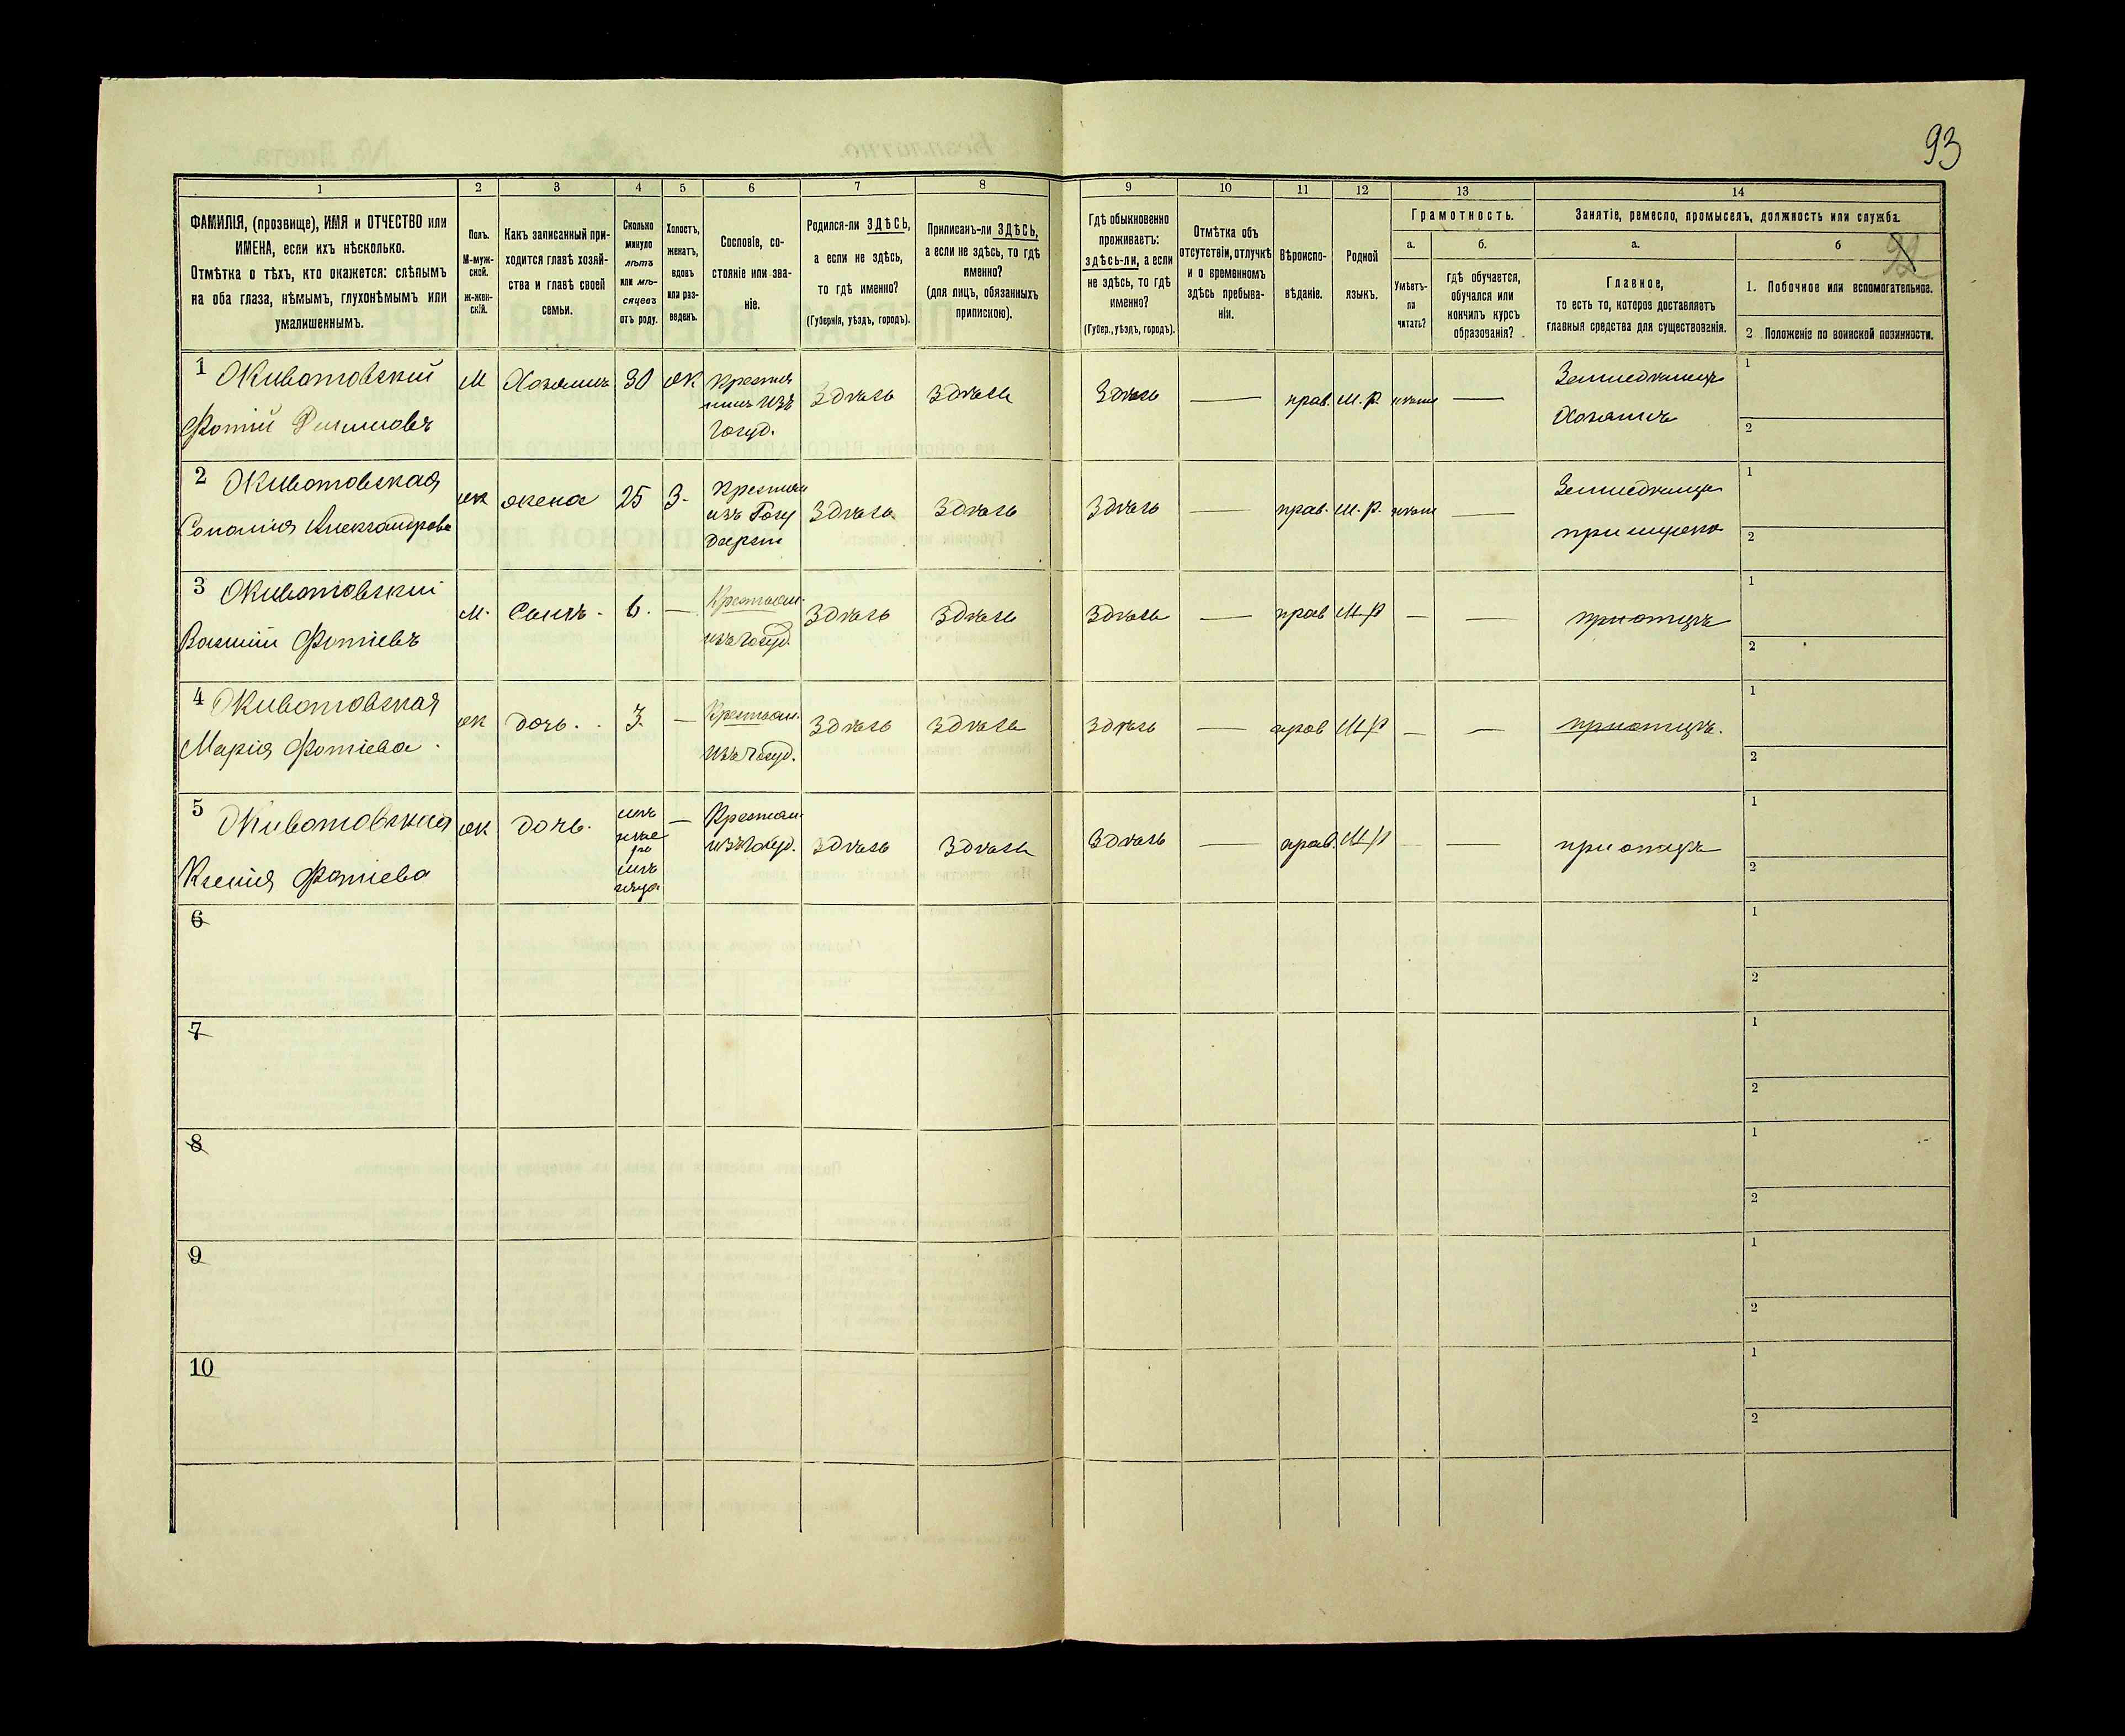 93
1 2 3 4 5 6 7 8 9 10 11 12 13 14
ФАМИЛІЯ, (прозвище), ИМЯ и ОТЧЕСТВО или
ИМЕНА, если ихъ нѣсколько.
Отмѣтка о тѣхъ, кто окажется: слѣпымъ
на оба глаза, нѣмымъ, глухонѣмымъ или
умалишеннымъ.
Полъ.
М-муж-
ской.
ж-жен-
скій.
Какъ записанный при-
ходится главѣ хозяй-
ства и главѣ своей
семьи.
Сколько
минуло
лѣтъ
или мѣ-
сяцевъ
отъ роду.
Холостъ,
женатъ,
вдовъ
или раз-
веденъ.
Сословіе, со-
стояніе или зва-
ніе.
Родился-ли ЗДѢСЬ,
а если не здѣсь,
то гдѣ именно?
(Губернія, уѣздъ, городъ).
Приписанъ-ли ЗДѢСЬ,
а если не здѣсь, то гдѣ
именно?
(для лицъ, обязанныхъ
припискою).
Гдѣ обыкновенно
проживаетъ:
здѣсь-ли, а если
не здѣсь, то гдѣ
именно?
(Губер., уѣздъ, городъ).
Отмѣтка объ
отсутствіи, отлучкѣ
и о временномъ
здѣсь пребыва-
ніи.
Вѣроиспо-
вѣданіе.
Родной
языкъ.
Грамотность.
а.
Умѣетъ-
ли
читать?
б.
гдѣ обучается,
обучался или
кончилъ курсъ
образованія?
Занятіе, ремесло, промыселъ, должность или служба.
а.
Главное,
то есть то, которое доставляетъ
главныя средства для существованія.
б
92
1. Побочное или вспомогательное.
2 Положеніе по воинской повинности.
1 Животовскій М Хозяинъ 30 ж Крестья
нинъ изъ
Госуд. Здѣсь Здѣсь Здѣсь — прав. М. р. — Земледѣлецъ
Хозяинъ 1
Фотій 2
2 Животовская ж жена 25 З. Крестьян
изъ Госу
дарст Здѣсь Здѣсь Здѣсь — прав. М. р. — Земледѣлица
при мужѣ 1
Александрова 2
3 Животовскій М. Сынъ. 6. — Крестьян.
изъ Госуд. Здѣсь Здѣсь Здѣсь — прав М р — — при отцѣ 1
Василій Фотіевъ 2
4 Животовская ж дочь. 3. — Крестьян.
изъ Госуд. Здѣсь Здѣсь Здѣсь — прав М р — — при отцѣ. 1
Марія Фотіева. 2
5 Животовская ж дочь. — Крестьян.
изъ Госуд. Здѣсь Здѣсь Здѣсь — прав. М р — — при отцѣ 1
Ксенія Фотіева 2
6 1
2
7 1
2
8 1
2
9 1
2
10 1
2